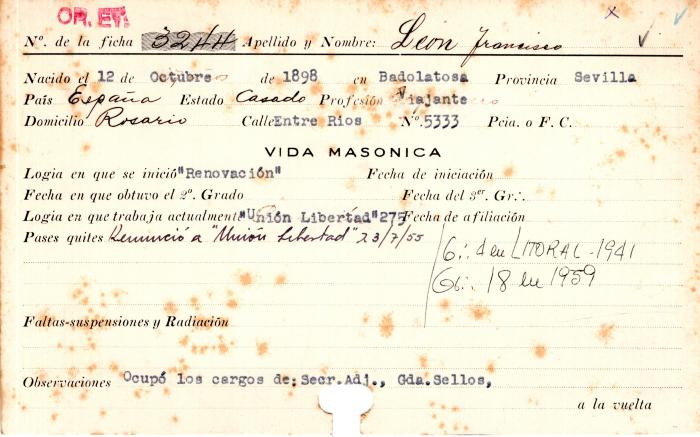 OR. ET.
Nº. de la ficha 3244 Apellido y Nombre: León Francisco
Nacido el 12 de Octubre de 1898 en Badolatosa Provincia Sevilla
País España Estado Casado Profesión Viajante
Domicilio Rosario Calle Entre Rios Nº. 5333 Pcia. o F. C.
VIDA MASONICA
Logia en que se inició "Renovación" Fecha de iniciación
Fecha en que obtuvo el 2º. Grado Fecha del 3er. Gr∴
Logia en que trabaja actualmente "Unión Libertad" 275 Fecha de afiliación
Pases quites Renunció a "Unión Libertad" 23/7/55
G∴ 4 en LITORAL - 1941
G∴ 18 en 1959
Faltas-suspensiones y Radiación
Observaciones Ocupó los cargos de: Secr. Adj., Gda. Sellos,
a la vuelta